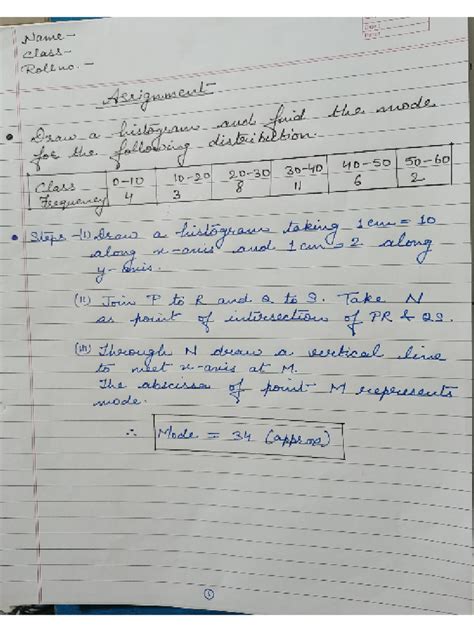 Name-
Class-
Roll no.-
Assignment
Draw a histogram and find the mode
for the following distribution.
Class 0-10 10-20 20-30 30-40 40-50 50-60
Frequency 4 3 8 11 6 2
Steps-(i) Draw a histogram taking 1cm=10
along x-axis and 1cm=2 along
y-axis.
(ii) Join P to R and Q to S. Take N
as point of intersection of PR & QS.
(iii) Through N draw a vertical line
to meet x-axis at M.
The abscissa of point M represents
mode.
∴ Mode = 34 (approx)